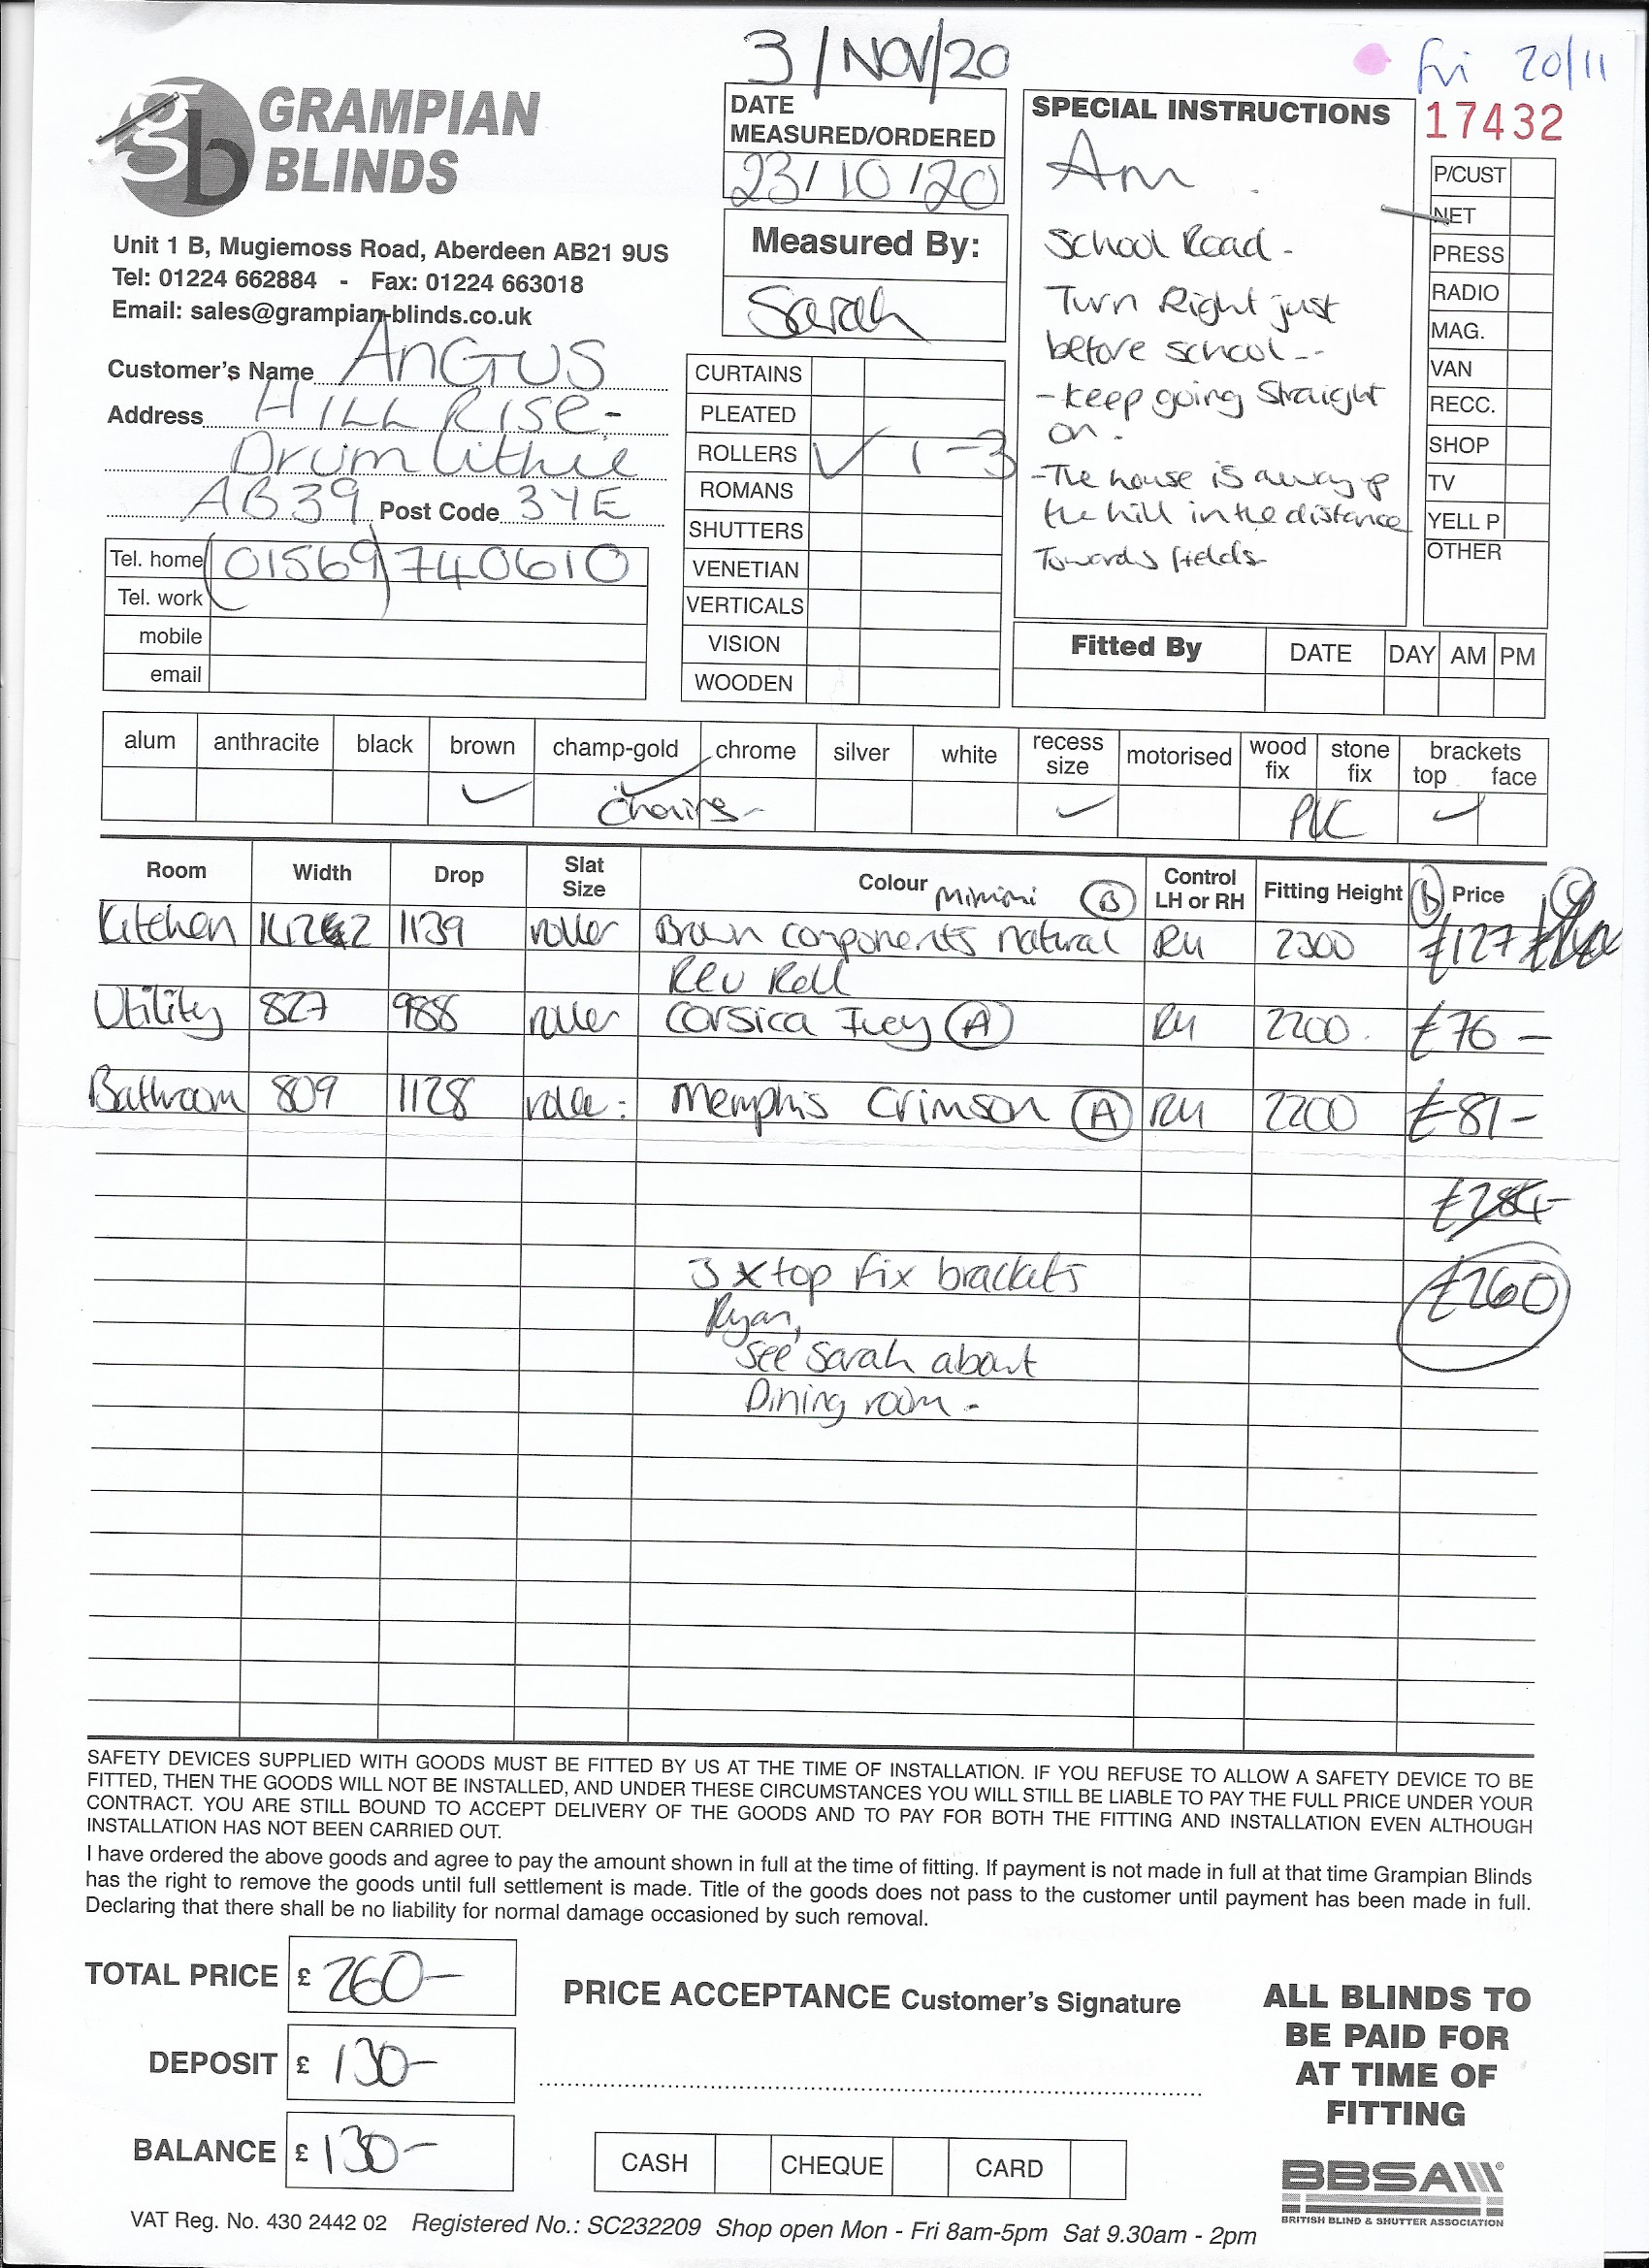 3/NOV/20
Fri 20/11
17432
gb GRAMPIAN
BLINDS
Unit 1 B, Mugiemoss Road, Aberdeen AB21 9US
Tel: 01224 662884 - Fax: 01224 663018
Email: sales@grampian-blinds.co.uk
DATE
MEASURED/ORDERED
23/10/20
Measured By:
Sarah
SPECIAL INSTRUCTIONS
Am
School Road -
Turn Right just
before school --
- keep going Straight
on.
- The house is away up
the hill in the distance
Towards fields
P/CUST
NET
PRESS
RADIO
MAG.
VAN
RECC.
SHOP
TV
YELL P
OTHER
Customer's Name ANGUS
Address HILL RISE -
Drumlithie
AB39 Post Code 3YE
Tel. home (01569) 740610
Tel. work
mobile
email
CURTAINS
PLEATED
ROLLERS ✓ 1-3
ROMANS
SHUTTERS
VENETIAN
VERTICALS
VISION
WOODEN
Fitted By DATE DAY AM PM
alum anthracite black brown champ-gold chrome silver white recess size motorised wood fix stone fix brackets top face
✓ ✓ Chains - ✓ PVC ✓
Room Width Drop Slat Size Colour Control LH or RH Fitting Height Price
Mimini (B) (b)
Kitchen 1139 roller Brown components natural RH 2300 £127
Rev Roll
Utility 827 988 roller Corsica Ivey (A) RH 2200 £76 -
Bathroom 809 1128 roller Memphis Crimson (A) RH 2200 £81 -
£284 -
3 x top fix brackets £260
Ryan,
See Sarah about
Dining room -
SAFETY DEVICES SUPPLIED WITH GOODS MUST BE FITTED BY US AT THE TIME OF INSTALLATION. IF YOU REFUSE TO ALLOW A SAFETY DEVICE TO BE
FITTED, THEN THE GOODS WILL NOT BE INSTALLED, AND UNDER THESE CIRCUMSTANCES YOU WILL STILL BE LIABLE TO PAY THE FULL PRICE UNDER YOUR
CONTRACT. YOU ARE STILL BOUND TO ACCEPT DELIVERY OF THE GOODS AND TO PAY FOR BOTH THE FITTING AND INSTALLATION EVEN ALTHOUGH
INSTALLATION HAS NOT BEEN CARRIED OUT.
I have ordered the above goods and agree to pay the amount shown in full at the time of fitting. If payment is not made in full at that time Grampian Blinds
has the right to remove the goods until full settlement is made. Title of the goods does not pass to the customer until payment has been made in full.
Declaring that there shall be no liability for normal damage occasioned by such removal.
TOTAL PRICE £ 260 -
DEPOSIT £ 130 -
BALANCE £ 130 -
PRICE ACCEPTANCE Customer's Signature
CASH CHEQUE CARD
ALL BLINDS TO
BE PAID FOR
AT TIME OF
FITTING
BBSA
BRITISH BLIND & SHUTTER ASSOCIATION
VAT Reg. No. 430 2442 02 Registered No.: SC232209 Shop open Mon - Fri 8am-5pm Sat 9.30am - 2pm